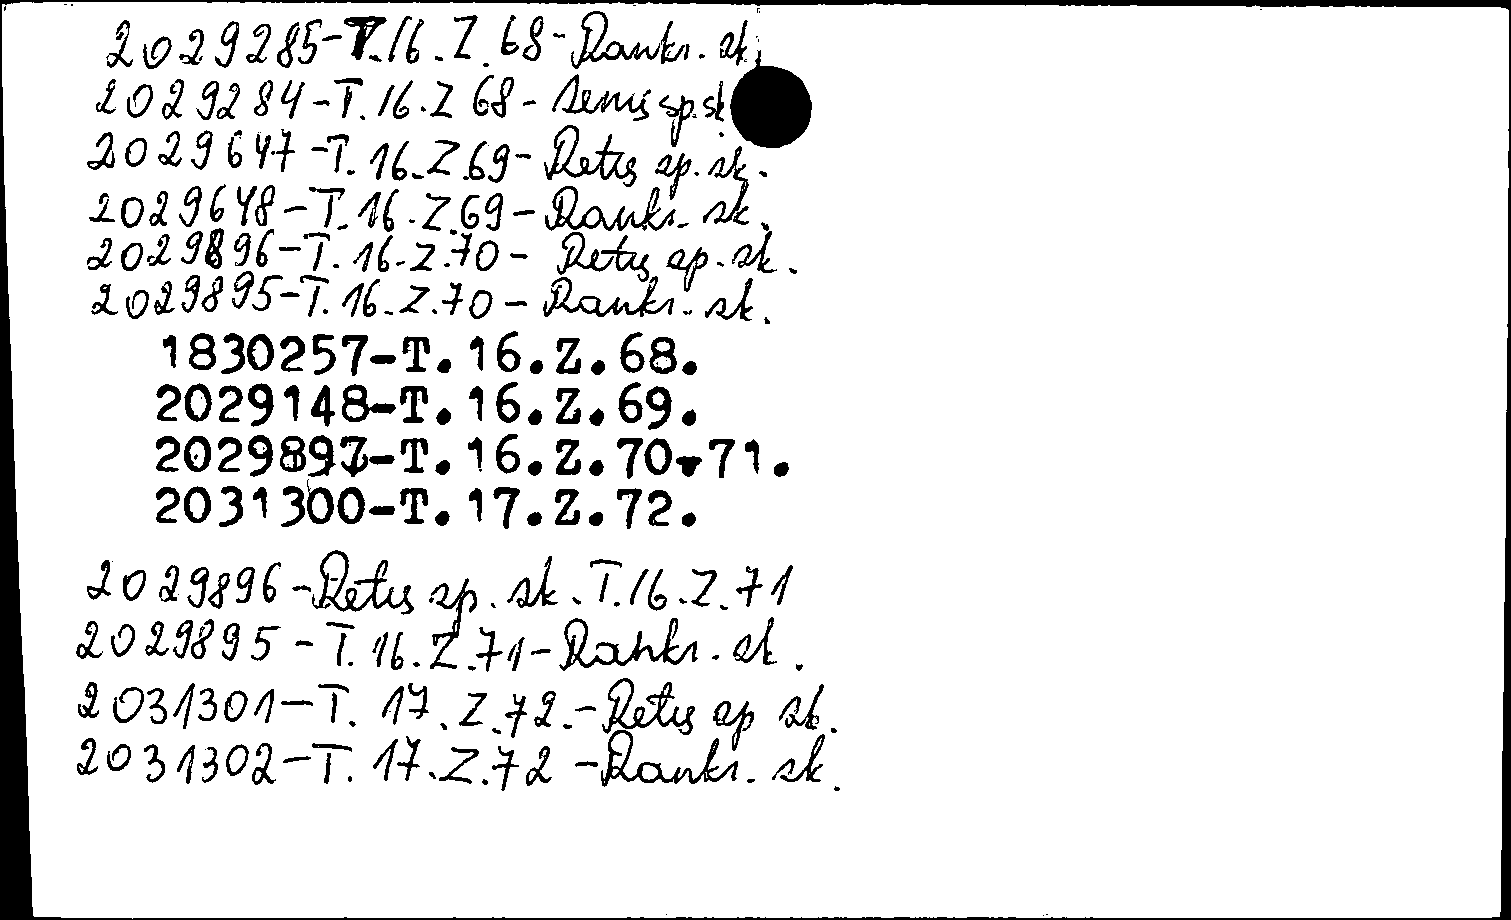 2029285-T.16.Z.68-Rankr. sk.
2029284-T.16.Z 68- senųsp.sk.
2029647-T.16.Z.69- Retųs sp. sk.
2029648-T.16.Z.69-Rankr. sk.
2029896-T.16.Z.70- Retųs sp. sk.
2029895-T.16.Z.70- Rankr. sk.
1830257-T.16.Z.68.
2029148-T.16.Z.69.
2029897-T.16.Z.70-71.
2031300-T.17.Z.72.
2029896-Retųs sp. sk. T.16.Z.71
2029895-T.16.Z.71-Rankr. sk.
2031301-T.17.Z.72.-Retųs sp sk.
2031302-T.17.Z.72-Rankr. sk.